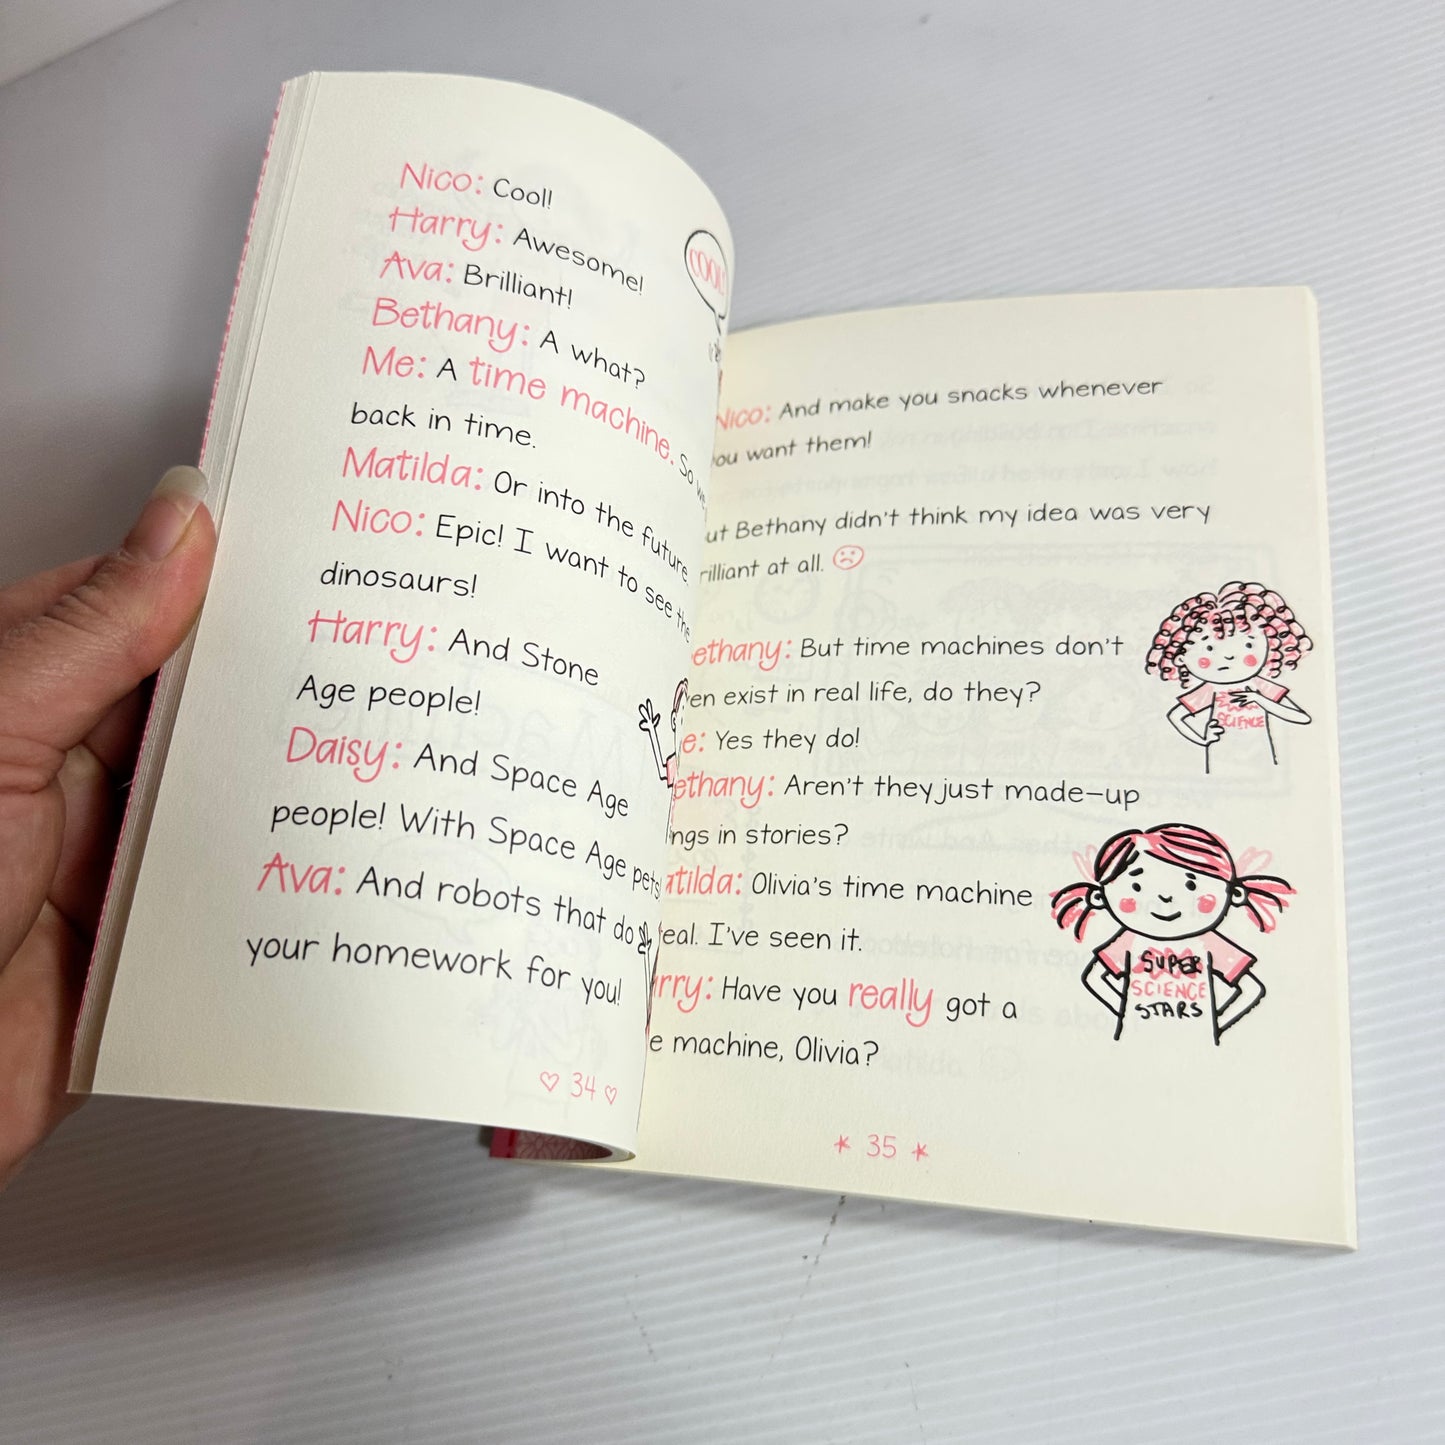 Nico: Cool!
Harry: Awesome!
Ava: Brilliant!
Bethany: A what?
Me: A time machine. So we
back in time.
Matilda: Or into the future.
Nico: Epic! I want to see the
dinosaurs!
Harry: And Stone
Age people!
Daisy: And Space Age
people! With Space Age pets!
Ava: And robots that do
your homework for you!
34
COOL!
Nico: And make you snacks whenever
you want them!
Bethany didn't think my idea was very
at all.
Bethany: But time machines don't
exist in real life, do they?
Yes they do!
Bethany: Aren't they just made-up
in stories?
Matilda: Olivia's time machine
real. I've seen it.
Harry: Have you really got a
machine, Olivia?
SCIENCE
SUPER
SCIENCE
STARS
35